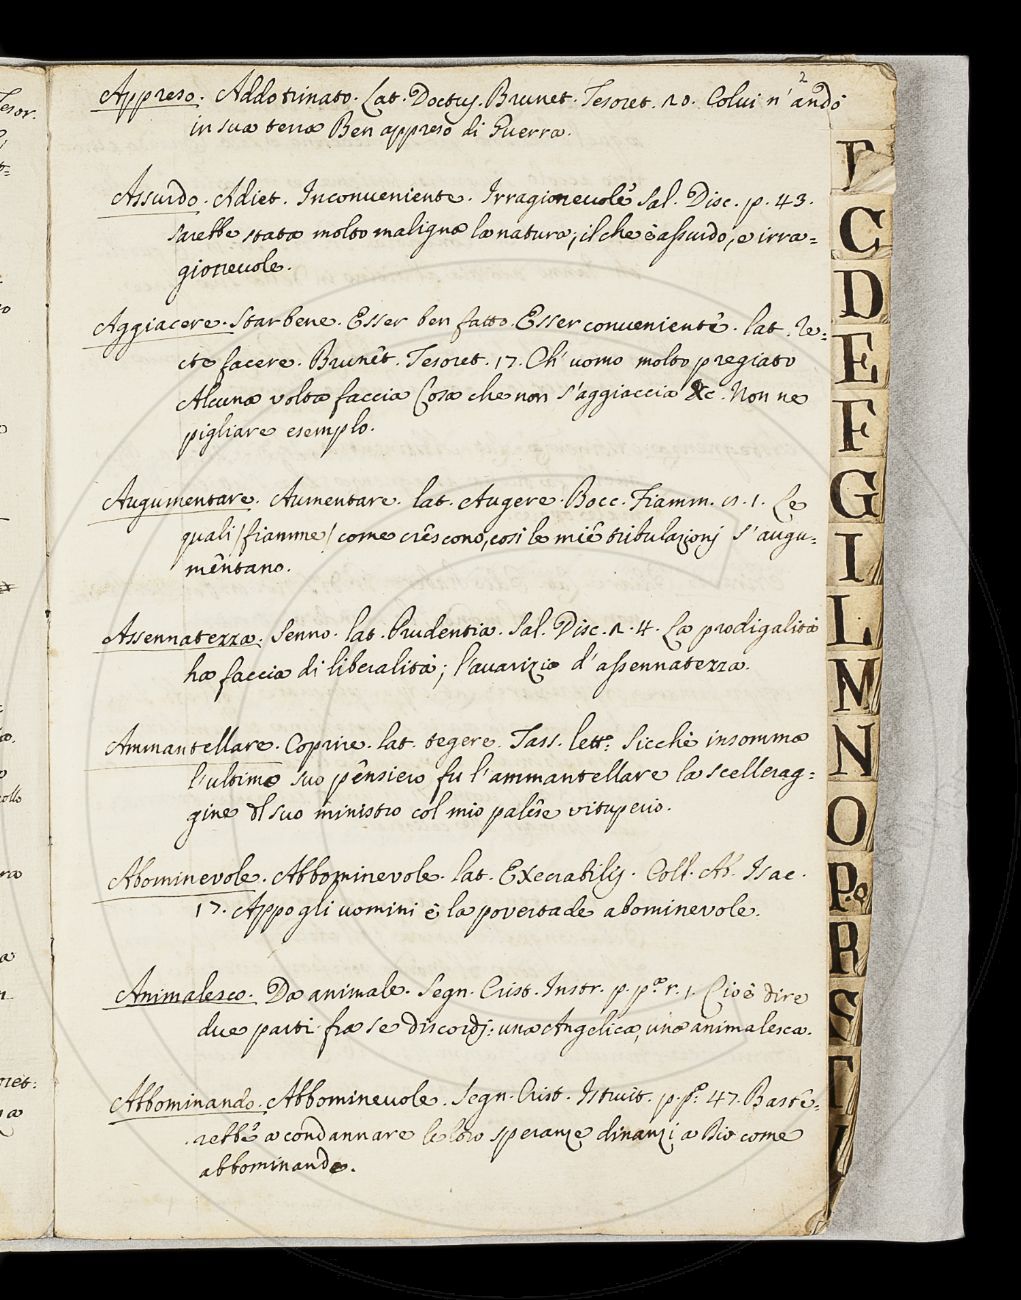 2
Appreso. Addotrinato. Lat. Doctus. Brunet. Tesoret. 20. Colui n'andò
in sua terra Ben appreso di Guerra.
Assurdo. Adiet. Inconveniente. Irragionevole. Sal. Disc. p. 43.
Sarebbe stata molto maligna la natura, il che è assurdo, e irra=
gionevole.
Aggiacere. Star bene. Esser ben fatto. Esser conveniente. lat. re=
cte facere. Brunet. Tesoret. 17. Ch'uomo molto pregiato
Alcuna volta faccia Cosa che non s'aggiaccia &c. Non ne
pigliare esemplo.
Augumentare. Aumentare. lat. Augere. Bocc. Fiamm. 1. Le
quali (fiamme) come crescono, così le mie tribulazionj s'augu=
mentano.
Assennatezza. Senno. lat. Prudentia. Sal. Disc. 2. 4. La prodigalità
ha faccia di liberalità; l'avarizia d'assennatezza.
Ammantellare. Coprire. lat. tegere. Tass. lett. Sicchè insomma
l'ultimo suo pensiero fu l'ammantellare la scellerag=
gine del suo ministro col mio palese vituperio.
Abominevole. Abbominevole. lat. Execrabilis. Coll. Ab. Isac.
17. Appo gli uomini è la povertade abominevole.
Animalesco. Da animale. Segn. Crist. Instr. p. pa. r. 1. Cioè dire
due parti fra se discordj: una Angelica, una animalesca.
Abbominando. Abbominevole. Segn. Crist. Istruit. p. pa. 47. Baste=
rebbe a condannare le loro speranze dinanzi a Dio come
abbominande.
C
D
E
F
G
I
L
M
N
O
P.Q
R
S
T